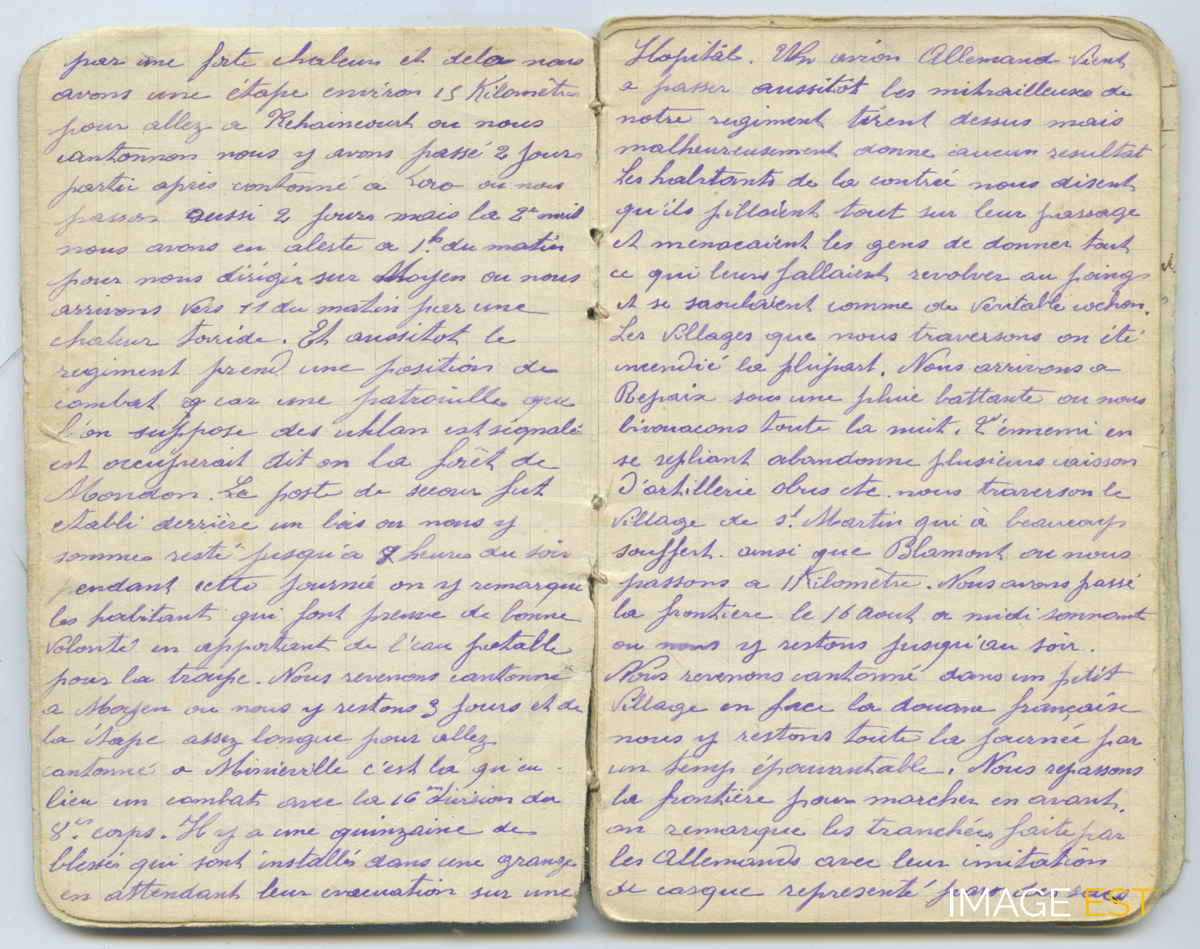 par une forte chaleur et dela nous
avons une étape environ 15 Kilomètre
pour allez a Rehaincourt ou nous
cantonnon nous y avons passé 2 jours
partie après cantonné a Loro ou nous
passon aussi 2 jours mais la 2e nuit
nous avons eu aleste a 1h du matin
pour nous dirigér sur Moyen ou nous
arrivons vers 11 du matin par une
chaleur toride. Et aussitot le
regiment prend une position de
combat car une patrouille que
l'on suppose des uhlan est signalé
est occuperait dit on la forêt de
Mondon. Le poste de secour fut
etabli derrière un bois ou nous y
somme resté jusqu'a heure du soir
pendant cette journeé on y remarque
les habitant qui font preuve de bonne
volonté en apportant de l'eau potable
pour la troupe. Nous revenons cantonné
a Moyen ou nous y restons 3 jours et de
la étape assez longue pour allez
cantonné a Minierville c'est la qu'eu
lieu un combat avec la 16me division du
8es corps. Il y a une quinzaine de
blesseé qui sont installés dans une grange
en attendant leur evacuation sur une
Hopitâl. Un avion Allemand vient
a passer aussitot les mitrailleuses de
notre regiment tirent dessus mais
malheureusement donne aucun resultat
Les habitants de la contreé nous disent
qu'ils pillaient tout sur leur passage
et menacaient les gens de donner tout
ce qui leurs fallaient revolver au poing
et se saoulaient comme de veritable cochon.
Les villages que nous traversons on été
incendié la plupart. Nous arrivons a
Repaix sous une pluie battante ou nous
bivouacons toute la nuit. L'ennemi en
se repliant abandonne plusieurs caisson
d'artillerie obus etc. nous traverson le
village de St Martin qui à beaucoup
souffert. ainsi que Blamont ou nous
passons a 1 Kilomètre. Nous avons passé
la frontière le 16 aout a midi sonnant
ou nous y restons jusqu'au soir.
Nous revenons cantonné dans un pétit
village en face la douane française
nous y restons toute la journeé par
un temp épouvantable. Nous repassons
la frontière pour marcher en avant.
on remarque les trancheés faite par
les Allemands avec leur imitation
de casque representé par des
IMAGE EST